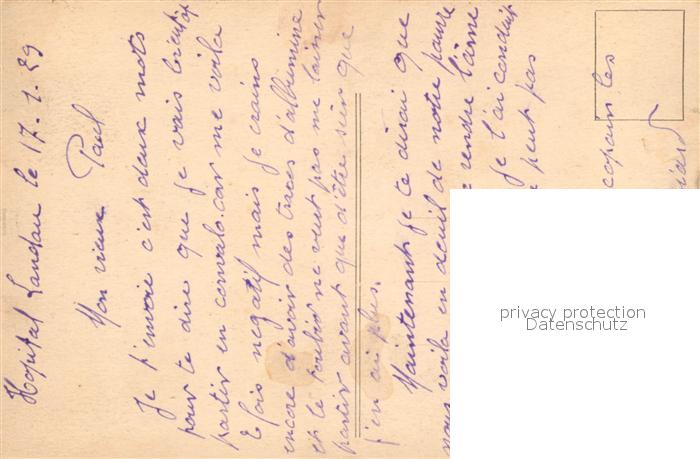 Hopital Landau le 17.1.29
Mon vieux Paul
Je t'envoie c'est deux mots
pour te dire que je vais bientot
partir en convalo. car me voila
2 fois negatif mais je crains
encore d'avoir des traces d'albumine
et le toubib ne veut pas me laisser
partir avant que d'être sûr que
j'en ai plus.
Maintenant je te dirai que
nous voila en deuil de notre pauvre
rendre l'âme
je l'ai conduit
peut pas
copain les
privacy protection
Datenschutz